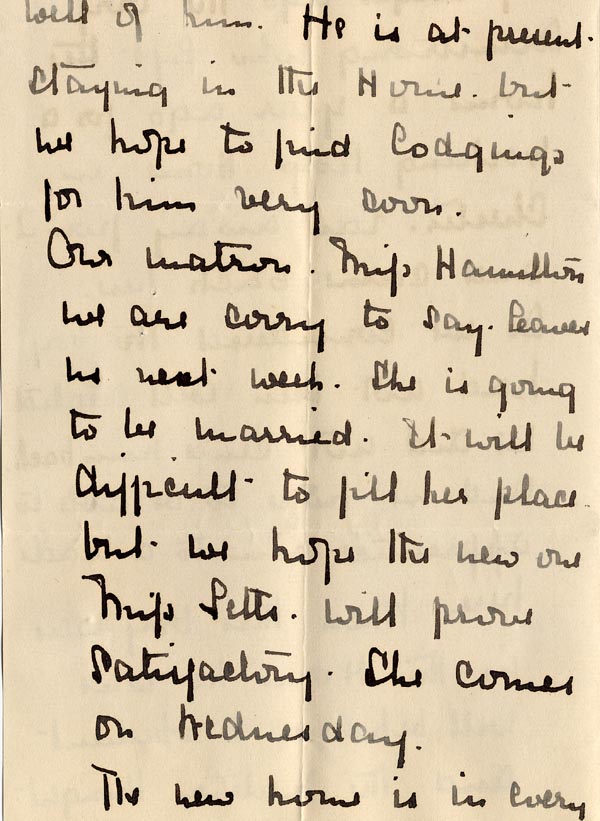 well of him. He is at present
staying in the Home. but
we hope to find lodgings
for him very soon.
Our matron. Miss Hamilton
we are sorry to say. leaves
us next week. She is going
to be married. It will be
difficult to fill her place
but we hope the new one
Miss Setts. will prove
satisfactory. She comes
on Wednesday.
The new home is in every